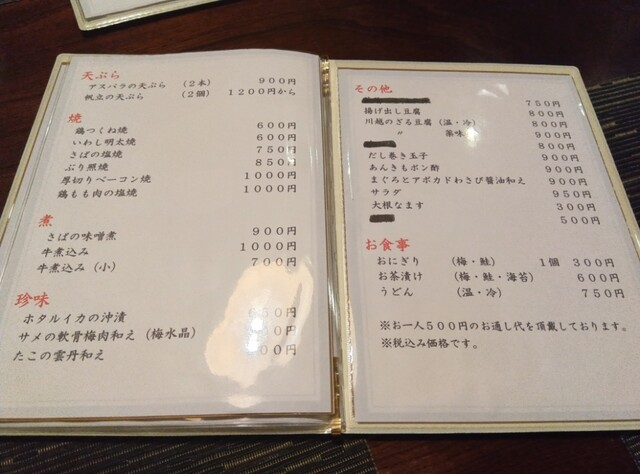 天ぷら
アスパラの天ぷら (2本) 900円
帆立の天ぷら (2個) 1200円から
焼
鶏つくね焼 600円
いわし明太焼 600円
さばの塩焼 750円
ぶり照焼 850円
厚切りベーコン焼 1000円
鶏もも肉の塩焼 1000円
煮
さばの味噌煮 900円
牛煮込み 1000円
牛煮込み(小) 700円
珍味
ホタルイカの沖漬 650円
サメの軟骨梅肉和え(梅水晶) 円
たこの雲丹和え 00円
その他
750円
揚げ出し豆腐 800円
川越のざる豆腐(温・冷) 800円
〃 薬味 900円
800円
だし巻き玉子 900円
あんきもポン酢 900円
まぐろとアボカドわさび醤油和え 900円
サラダ 950円
大根なます 300円
500円
お食事
おにぎり (梅・鮭) 1個 300円
お茶漬け (梅・鮭・海苔) 600円
うどん (温・冷) 750円
※お一人500円のお通し代を頂戴しております。
※税込み価格です。